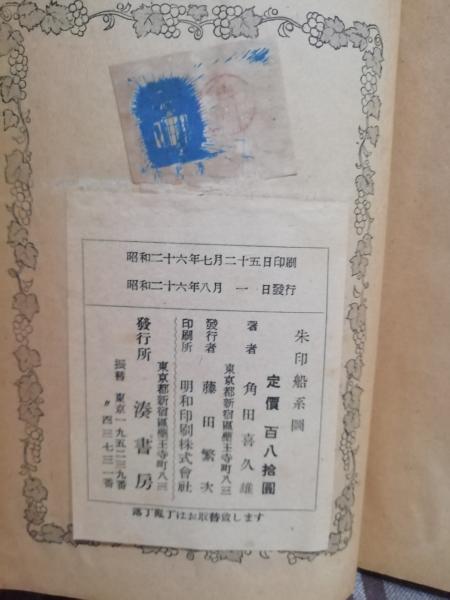 昭和二十六年七月二十五日印刷
昭和二十六年八月 一 日發行
朱印船系圖
定價 百八拾圓
著者 角田喜久雄
東京都新宿區藥王寺町八三
發行者 藤田繁次
印刷所 明和印刷株式會社
東京都新宿區藥王寺町八三
發行所 湊書房
振替 東京一九五二三九番
〃四三七三一番
落丁亂丁はお取替致します